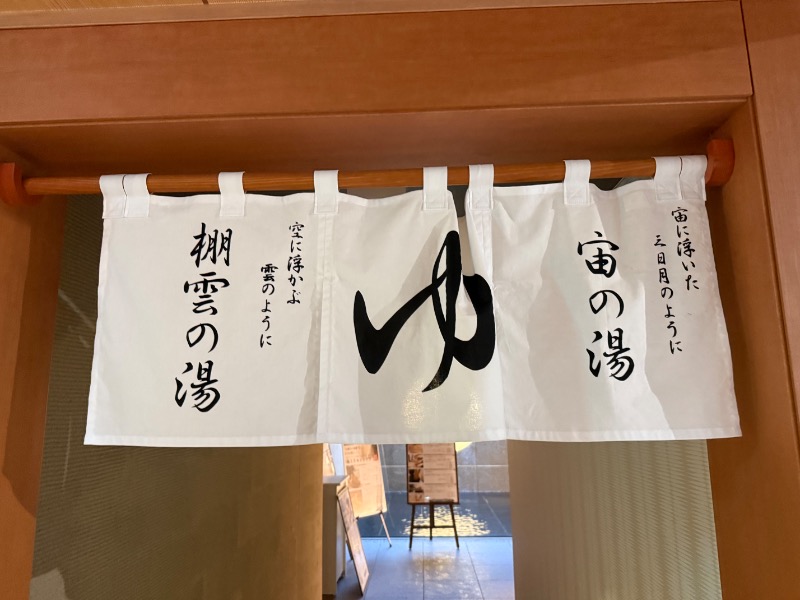 宙に浮いた
三日月のように
宙の湯
ゆ
空に浮かぶ
雲のように
棚雲の湯